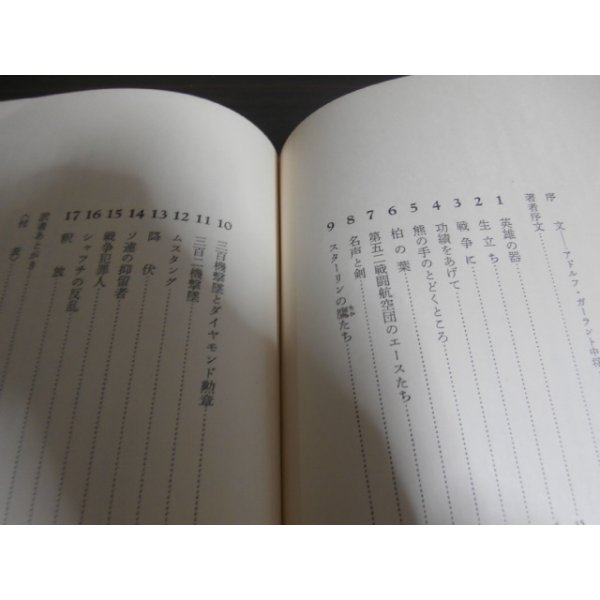 序 文――アドルフ・ガーラント中将
著者序文
1 英雄の器
2 生立ち
3 戦争に
4 功績をあげて
5 熊の手のとどくところ
6 柏の葉
7 第五二戦闘航空団のエースたち
8 名声と剣
9 スターリンの鷹たち
10 三百機撃墜とダイヤモンド勲章
11 三百二機撃墜
12 ムスタング
13 降伏
14 ソ連の抑留者
15 戦争犯罪人
16 シャフチの反乱
17 釈放
訳者あとがき